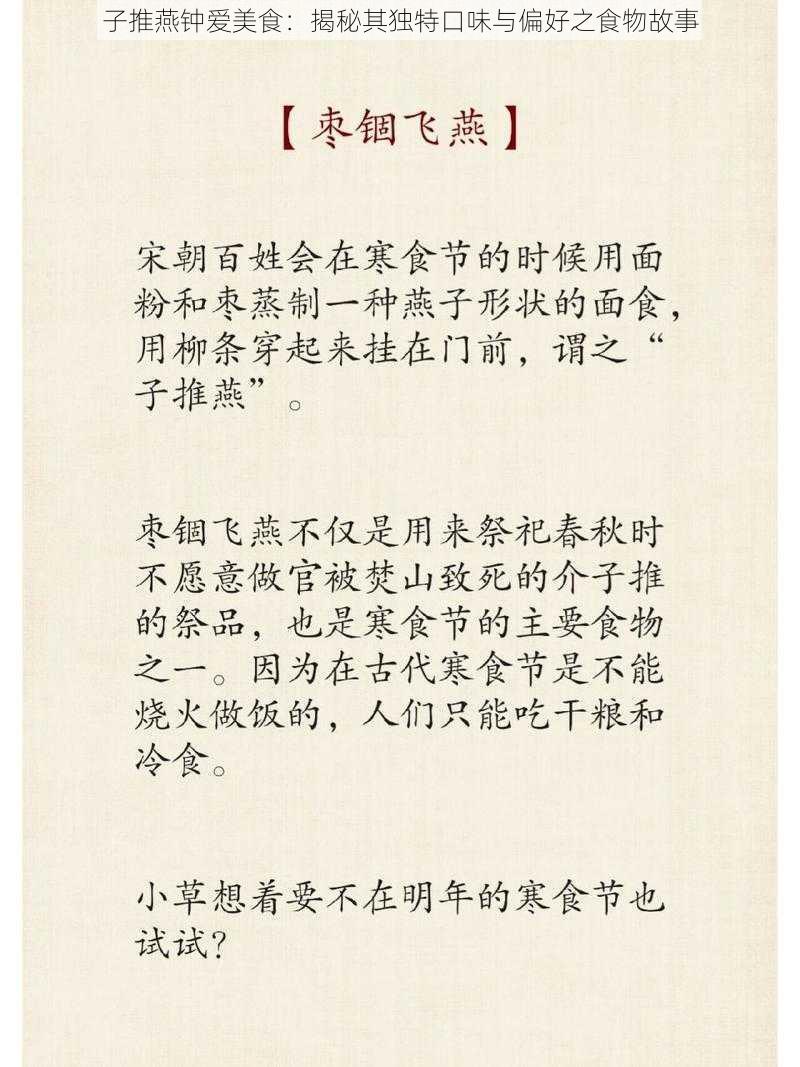 子推燕钟爱美食：揭秘其独特口味与偏好之食物故事
【枣锢飞燕】
宋朝百姓会在寒食节的时候用面
粉和枣蒸制一种燕子形状的面食，
用柳条穿起来挂在门前，谓之“
子推燕”。
枣锢飞燕不仅是用来祭祀春秋时
不愿意做官被焚山致死的介子推
的祭品，也是寒食节的主要食物
之一。因为在古代寒食节是不能
烧火做饭的，人们只能吃干粮和
冷食。
小草想着要不在明年的寒食节也
试试？